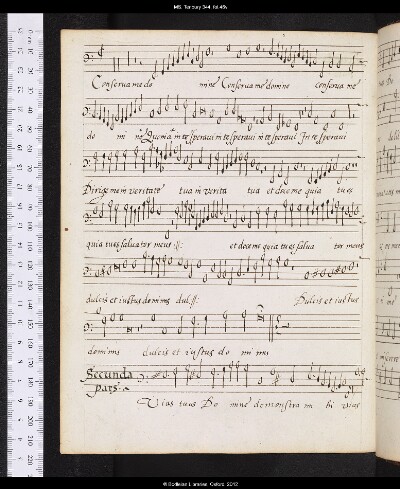 MS. Tenbury 344, fol.45v
Conserua me do mine Conserua me domine conserua me
do mi ne Quonia in te speraui in te speraui in te speraui In te speraui
Dirige me in veritate tua in verita tua et doce me quia tu es
quia tu es saluator meus :||: et doce me quia tu es salua tor meus
dulcis et iustus dominus dul :||: Dulcis et iustus
dominus dulcis et iustus do mi nus
Secunda
pars
Vias tuas Do mine demonstra mi hi vias
© Bodleian Libraries, Oxford, 2012